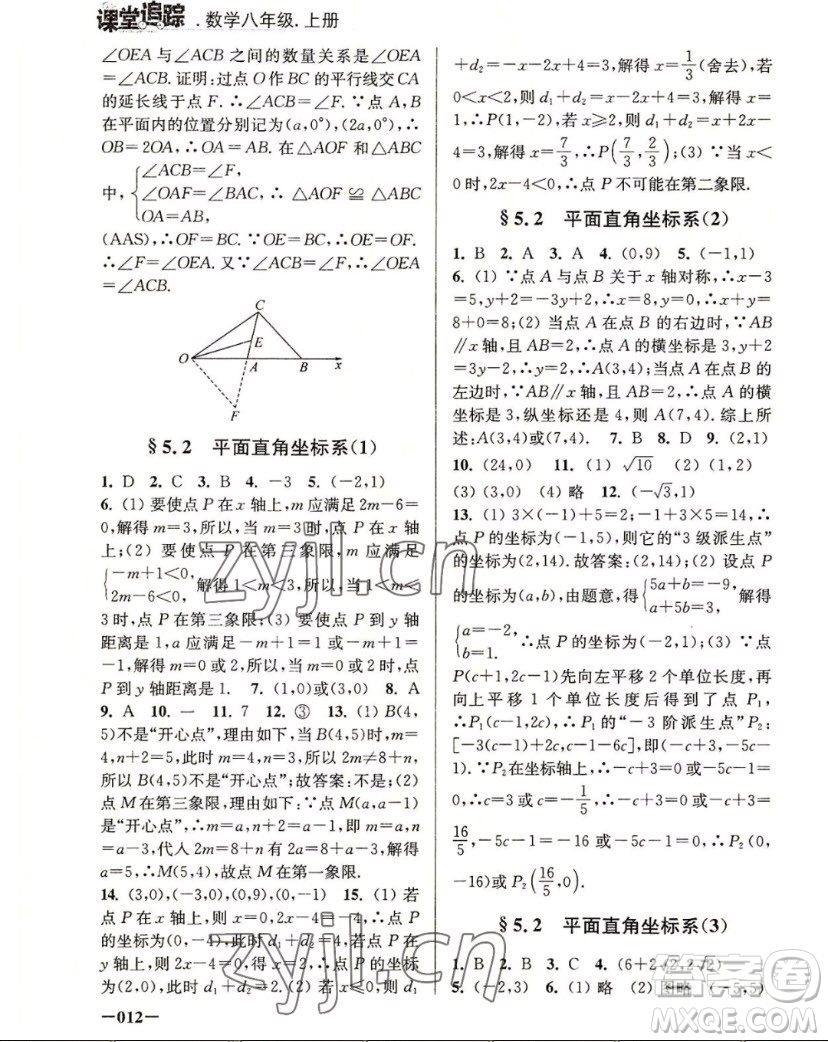 课堂追踪 . 数学八年级. 上册
∠OEA 与∠ACB 之间的数量关系是∠OEA
=∠ACB. 证明:过点 O 作 BC 的平行线交 CA
的延长线于点 F. ∴∠ACB=∠F. ∵点 A, B
在平面内的位置分别记为(a,0°),(2a,0°),∴
OB=2OA,∴OA=AB. 在△AOF 和△ABC
中,{∠ACB=∠F,
∠OAF=∠BAC, ∴ △AOF ≌ △ABC
OA=AB,
(AAS),∴OF=BC. ∵OE=BC,∴OE=OF.
∴∠F=∠OEA. 又∵∠ACB=∠F,∴∠OEA
=∠ACB.
C
E
O A B x
F
§5.2 平面直角坐标系(1)
1. D 2. C 3. B 4. -3 5. (-2,1)
6. (1) 要使点 P 在 x 轴上,m 应满足 2m-6=
0,解得 m=3,所以,当 m=3时,点 P 在 x 轴
上;(2) 要使点 P 在第三象限,m 应满足
{-m+1<0,
2m-6<0, 解得 1<m<3,所以,当 1<m<
3时,点 P 在第三象限;(3) 要使点 P 到 y 轴
距离是 1,m 应满足-m+1=1或-m+1=
-1,解得 m=0或 2,所以,当 m=0或 2时,点
P 到 y 轴距离是 1. 7. (1,0)或(3,0) 8. A
9. A 10. 一 11. 7 12. ③ 13. (1) B(4,
5)不是“开心点”,理由如下:当 B(4,5)时,m=
4,n+2=5,此时 m=4,n=3,所以 2m≠8+n,
所以 B(4,5)不是“开心点”;故答案:不是;(2)
点 M 在第三象限,理由如下:∵点 M(a,a-1)
是“开心点”,∴m=a,n+2=a-1,即 m=a,n
=a-3,代入 2m=8+n有 2a=8+a-3,
a=5,∴M(5,4),故点 M 在第一象限.
14. (3,0),(-3,0),(0,9),(0,-1) 15. (1) 若
点 P 在 x 轴上,则 x=0,2x-4=-4,∴点 P
的坐标为(0,-4),此时 d₁+d₂=4;若点 P 在
y 轴上,则 2x-4=0,解得 x=2,∴点 P 的坐
标为(2,0),此时 d₁+d₂=2. (2) 若 x≤0,则 d₁
—012—
+d₂=-x-2x+4=3,解得 x=1/3(舍去),若
0<x<2,则 d₁+d₂=x-2x+4=3,解得 x=
1,∴P(1,-2),若 x≥2,则 d₁+d₂=x+2x-
4=3,解得 x=7/3,∴P(7/3,2/3);(3) ∵当 x<
0时,2x-4<0,∴点 P 不可能在第二象限.
§5.2 平面直角坐标系(2)
1. B 2. A 3. A 4. (0,9) 5. (-1,1)
6. (1) ∵点 A 与点 B 关于 x 轴对称,∴x-3
=5,y+2=-y-2,∴x=8,y=-2,∴x+4y=
8+0=8;(2) 当点 A 在点 B 的右边时,∵AB
∥x 轴,且 AB=2,∴点 A 的横坐标是 7,y+2
=3y-6,∴y=4,∴A(7,4). 当点 A 在点 B 的
左边时,∵AB∥x 轴,且 AB=2,∴点 A 的横
坐标是 3,纵坐标还是 4,∴A(3,4). 综上所
述:A(3,4)或(7,4). 7. B 8. D 9. (2,1)
10. (24,0) 11. (1) √10 (2) (0,1)
(3) (3,0) (4) 略 12. (-√3,1)
13. (1) 3×(-1)+5=2;-1+3×5=14,∴
点 P 的坐标为(-1,5),则它的“3 级派生点”
的坐标为(2,14). 故答案:(2,14);(2) 设点 P
的坐标为(a,b),由题意,得{5a+b=-9,
a+5b=3, 解得
{a=-2,
b=1. ∴点 P 的坐标为(-2,1);(3) ∵点
P(c+1,2c)先向左平移 2 个单位长度,再
向上平移 1 个单位长度后得到了点 P₁,
∴P₁(c-1,2c),∴P₁的“-3 阶派生点”P₂:
[-3(c-1)+2c,c-1-6c],即(-c+3,-5c-
1),∵P₂在坐标轴上,∴-c+3=0或-5c-1=
0,∴c=3或 c=-1/5,∴-5c-1=-16或-c+3=
16/5,∴-5c-1=-16或-c+3=16/5,∴P₂(0,
-16)或 P₂(16/5,0).
§5.2 平面直角坐标系(3)
1. B 2. B 3. C 4. (6+2√2,2√2)
5. (-2,3) 6. (1) 略 (2) 图略 (-5,5)
zyjl.cn
zyjl.cn
答案圈
MXQE.COM